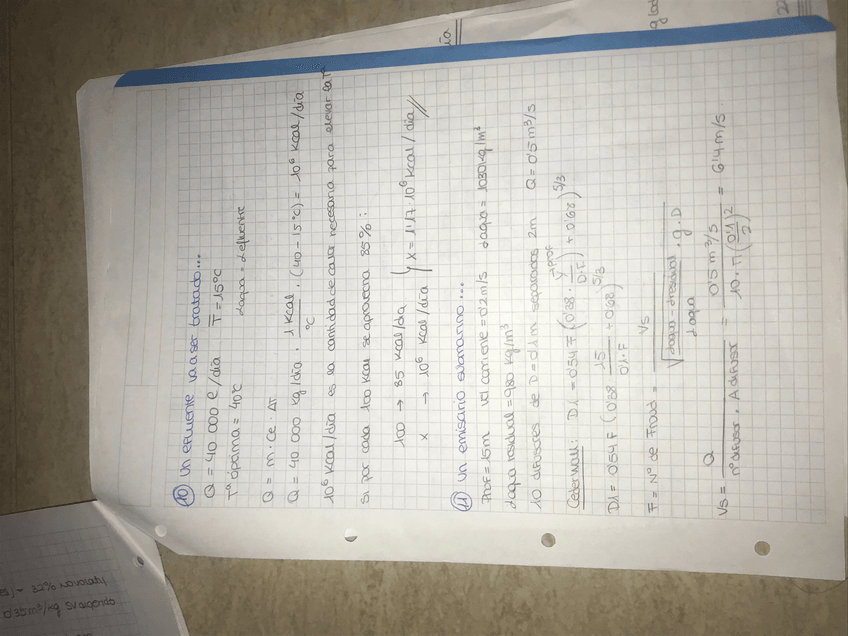 10 Un efluente va a ser tratado...
Q = 40 000 l/día T = 15°C
Tª óptima = 40°C dagua = defluente
Q = m · Ce · ΔT
Q = 40 000 kg/día · 1 Kcal/°C · (40 - 15°C) = 10⁶ Kcal/día
10⁶ Kcal/día es la cantidad de calor necesaria para elevar la Tª
Si por cada 100 Kcal se aprovecha 85%:
100 → 85 Kcal/día
x → 10⁶ Kcal/día } x = 1'17·10⁶ Kcal/día //
11 Un emisario submarino...
Prof = 15m vel corriente = 0'2 m/s dagua = 1030 kg/m³
dagua residual = 980 kg/m³
10 difusores de D = 0'1m separados 2m Q = 0'5 m³/s
Cederwall: D1 = 0'54 F (0'38 · Y/D·F + 0'68)^5/3
→ prof
D1 = 0'54 F (0'38 15/0'1·F + 0'68)^5/3
F = Nº de Froud = Vs / √(dagua - dresidual / dagua · g · D)
Vs = Q / nº difusor · A difusor = 0'5 m³/s / 10 · π (0'1/2)² = 6'4 m/s
día
32%
0'35 m³/kg SV